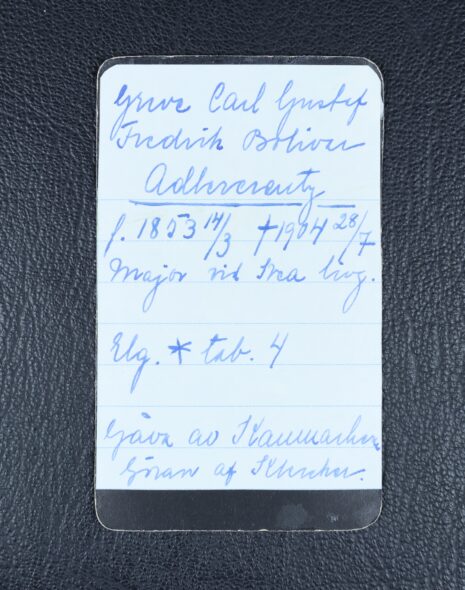 Greve Carl Gustaf
Fredrik Boliver
Adlercreutz
f. 1853 14/3 †1904 28/7
Major vid Svea livg.
Elg. * tab. 4
Gåva av Kammarherre
Göran af Klercker.